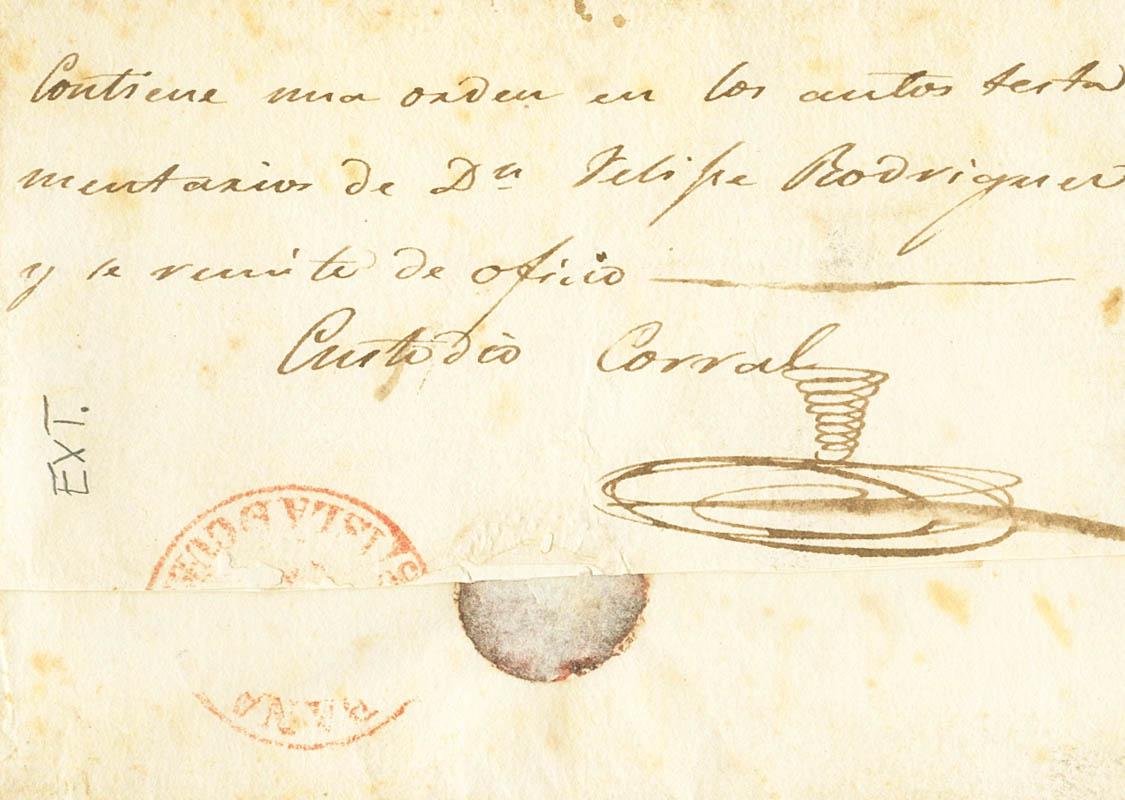 Contiene una orden en los autos testa
mentarios de Dn Felipe Rodriguez
y se remite de oficio
Custodio Corral
EXT.
ISLA DE CUBA